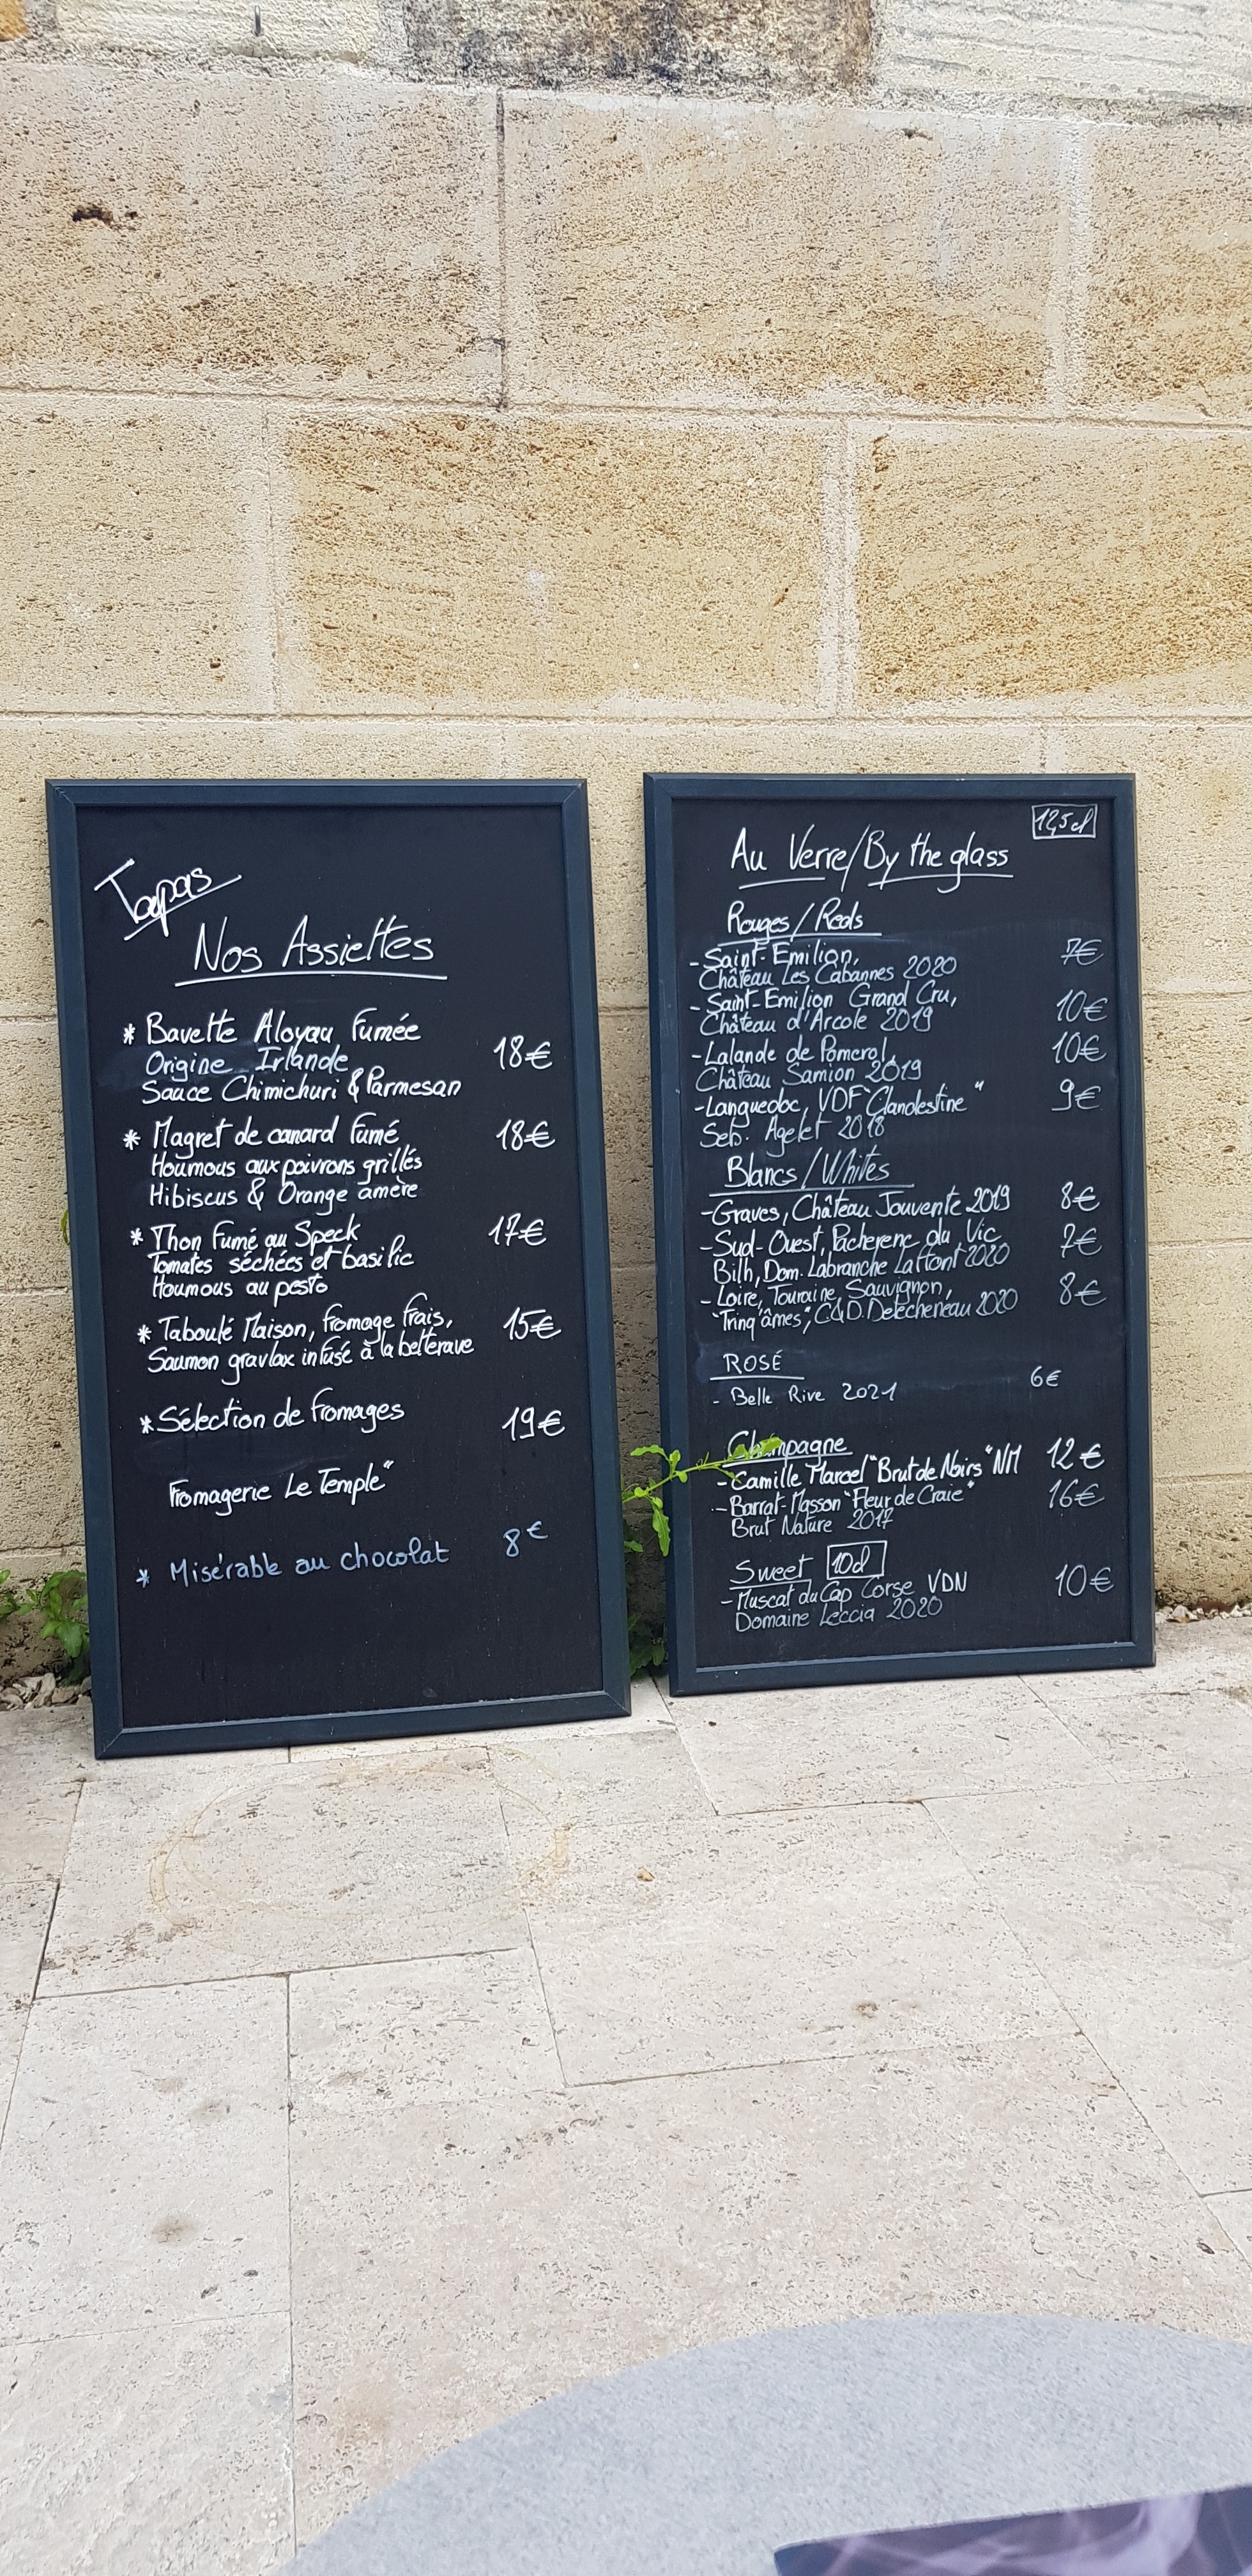 Tapas
Nos Assiettes
* Bavette Aloyau Fumée
Origine Irlande 18€
Sauce Chimichuri & Parmesan
* Magret de canard fumé 18€
Houmous aux poivrons grillés
Hibiscus & Orange amère
* Thon Fumé au Speck 17€
Tomates séchées et basilic
Houmous au pesto
* Taboulé Maison, fromage frais, 15€
Saumon gravlax infusé à la betterave
* Sélection de fromages 19€
Fromagerie Le Temple"
* Misérable au chocolat 8€
12,5cl
Au Verre/By the glass
Rouges/Reds
- Saint-Emilion, 7€
Château Les Cabannes 2020
- Saint-Emilion Grand Cru, 10€
Château d'Arcole 2019
- Lalande de Pomerol, 10€
Château Samion 2019
- Languedoc, VDF "Clandestine" 9€
Seb. Agelet 2018
Blancs/Whites
- Graves, Château Jouvente 2019 8€
- Sud-Ouest, Pacherenc du Vic 7€
Bilh, Dom. Labranche Laffont 2020
- Loire, Touraine, Sauvignon, 8€
"Trinq'âmes", C&D. Delecheneau 2020
ROSÉ
- Belle Rive 2021 6€
Champagne
- Camille Marcel "Brut de Noirs" NM 12€
- Barrat-Masson "Fleur de Craie" 16€
Brut Nature 2017
Sweet 10cl
- Muscat du Cap Corse VDN 10€
Domaine Leccia 2020